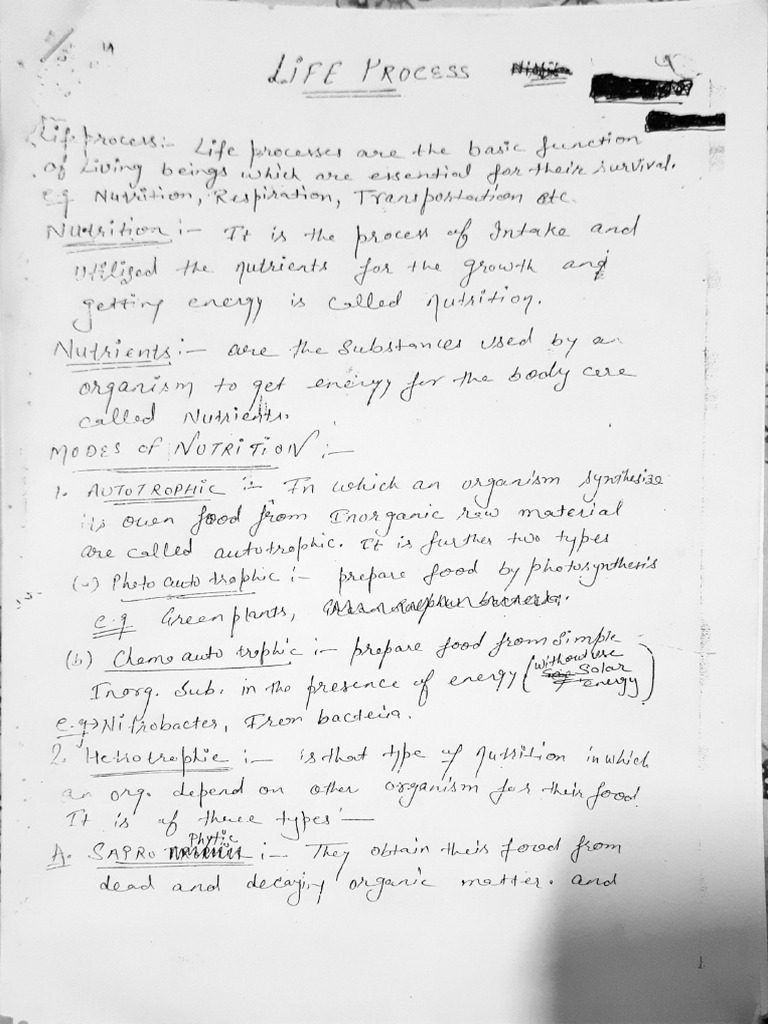 LIFE PROCESS
Life process:- Life processes are the basic function
of living beings which are essential for their survival.
e.g Nutrition, Respiration, Transportation etc.
Nutrition :- It is the process of Intake and
Utilised the nutrients for the growth and
getting energy is called nutrition.
Nutrients :- are the substances used by an
organism to get energy for the body are
called Nutrients.
MODES OF NUTRITION :-
1. AUTOTROPHIC :- In which an organism synthesize
its ouen food from Inorganic raw material
are called autotrophic. It is further two types
(a) Photo auto trophic :- prepare food by photosynthesis
e.g Green plants,
(b) Chemo auto trophic :- prepare food from simple
Inorg. sub. in the presence of energy (without use
Solar
energy)
e.g→ Nitrobacter, Iron bacteria.
2. Hetrotrophic :- is that type of nutrition in which
an org. depend on other organism for their food.
It is of three types :-
A. SAPRO phytic :- They obtain their food from
dead and decaying organic matter. and
1